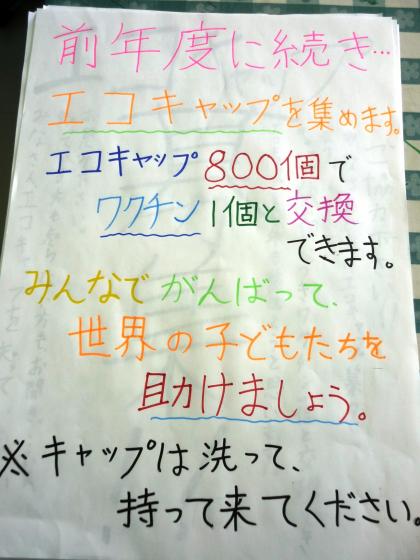 前年度に続き…
エコキャップを集めます。
エコキャップ800個で
ワクチン1個と交換
できます。
みんなでがんばって、
世界の子どもたちを
助けましょう。
※キャップは洗って、
持って来てください。